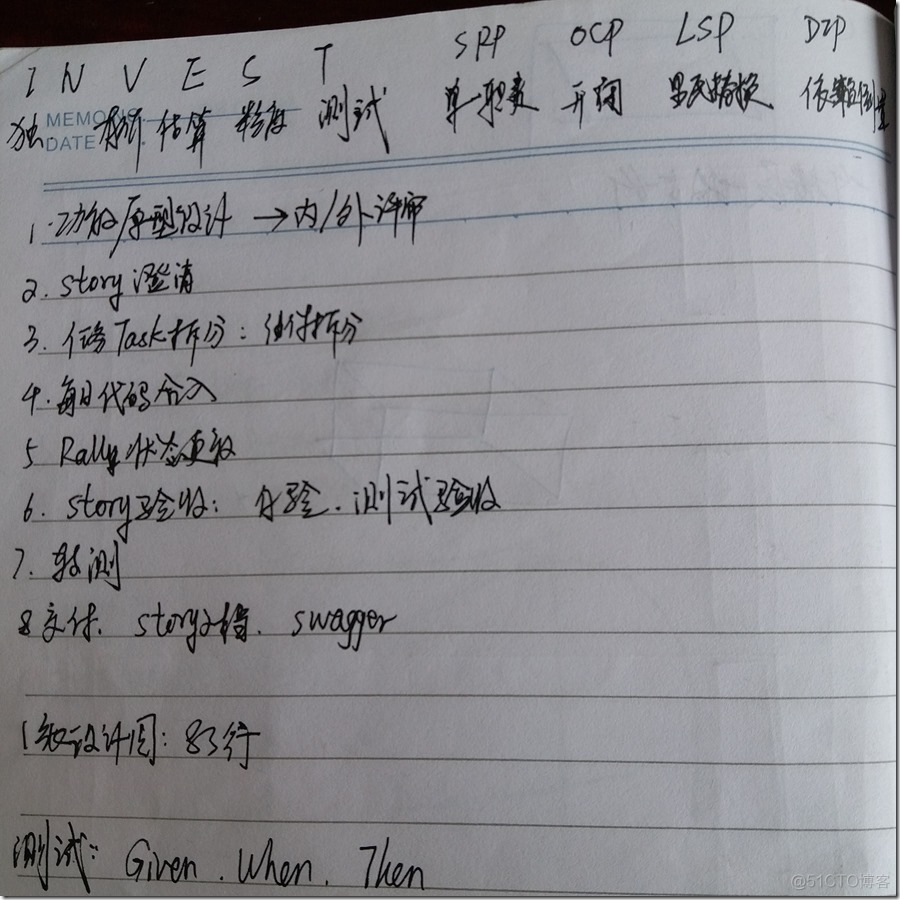 I N V E S T SRP OCP LSP DIP
独 估算 粒度 测试 单一职责 开闭 里氏替换 依赖倒置
MEMO NO.
DATE
1. 功能/原型设计 → 内/外评审
2. story 澄清
3. 任务Task拆分: 拆分
4. 每日代码合入
5 Rally 状态更新
6. story验收: 测试验收
7. 转测
8 交付. story文档. swagger
设计图: 83行
测试: Given. When. Then
@51CTO博客